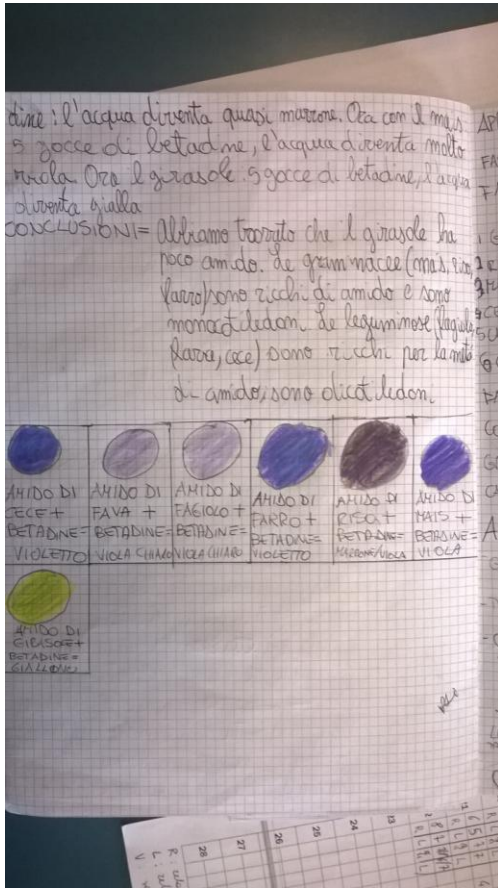 dine: l'acqua diventa quasi marrone. Ora con l mais
5 gocce di betadne, l'acqua diventa molto
viola. Ora l girasole. 5 gocce di betadine, l'acqua
diventa gialla
CONCLUSIONI= Abbiamo trovato che l girasole ha
poco amido. Le gramnacee (mais, riso,
farro) sono ricchi di amido e sono
monocotiledon. Le leguminose (fagiolo,
fava, cece) sono ricchi per la metà
di amido, sono dicotiledon.
AMIDO DI CECE + BETADINE= VIOLETTO
AMIDO DI FAVA + BETADINE= VIOLA CHIARO
AMIDO DI FAGIOLO + BETADINE= VIOLA CHIARO
AMIDO DI FARRO + BETADINE= VIOLETTO
AMIDO DI RISO + BETADINE= MARRONE/VIOLA
AMIDO DI MAIS + BETADINE= VIOLA
AMIDO DI GIRASOLE + BETADINE= GIALLO
28
27
26
25
24
23